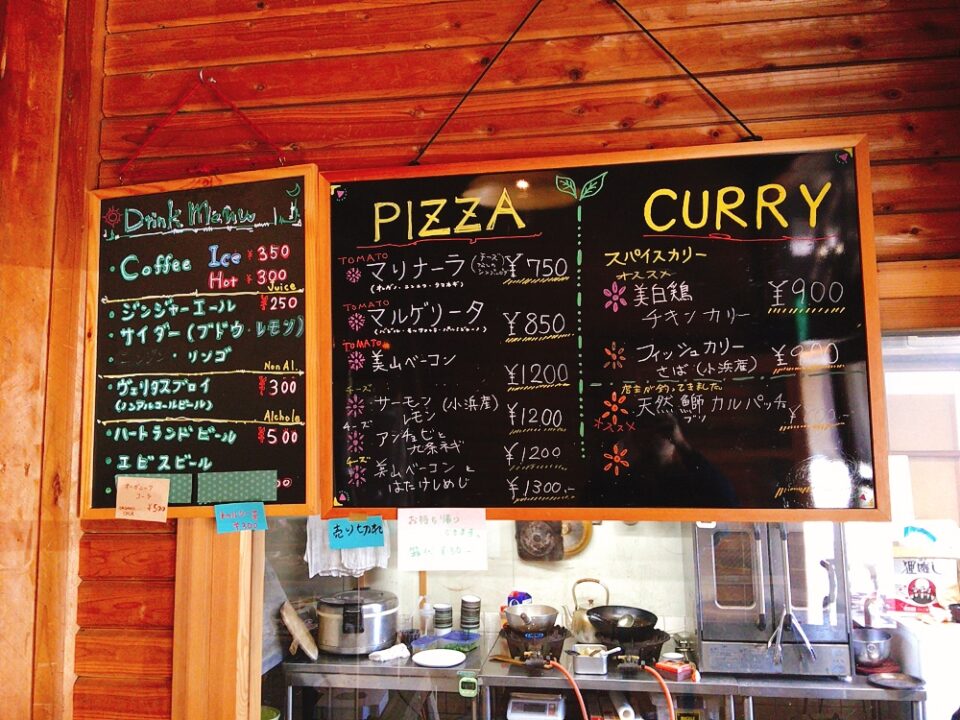 Drink Menu
Coffee Ice ¥350
Hot ¥300
Juice
ジンジャーエール ¥250
サイダー(ブドウ・レモン)
・リンゴ
Non Al.
ヴェリタスブロイ ¥300
(ノンアルコールビール)
Alchole
ハートランドビール ¥500
エビスビール
オーガニック
コーラ
ORGANIC
COLA ¥500
¥300
PIZZA
TOMATO
マリナーラ ¥750
TOMATO
マルゲリータ ¥850
TOMATO
美山ベーコン ¥1200
チーズ
サーモン(小浜産)
レモン ¥1200
チーズ
アンチョビと
九条ネギ ¥1200
チーズ
美山ベーコンと
はたけしめじ ¥1300.-
売り切れ
お持ち帰り
できます。
CURRY
スパイスカリー
オススメ
美白鶏 ¥900
チキンカリー
フィッシュカリー ¥900
さば(小浜産)
店主が釣ってきました。
天然鰤カルパッチョ
ブリ
オススメ